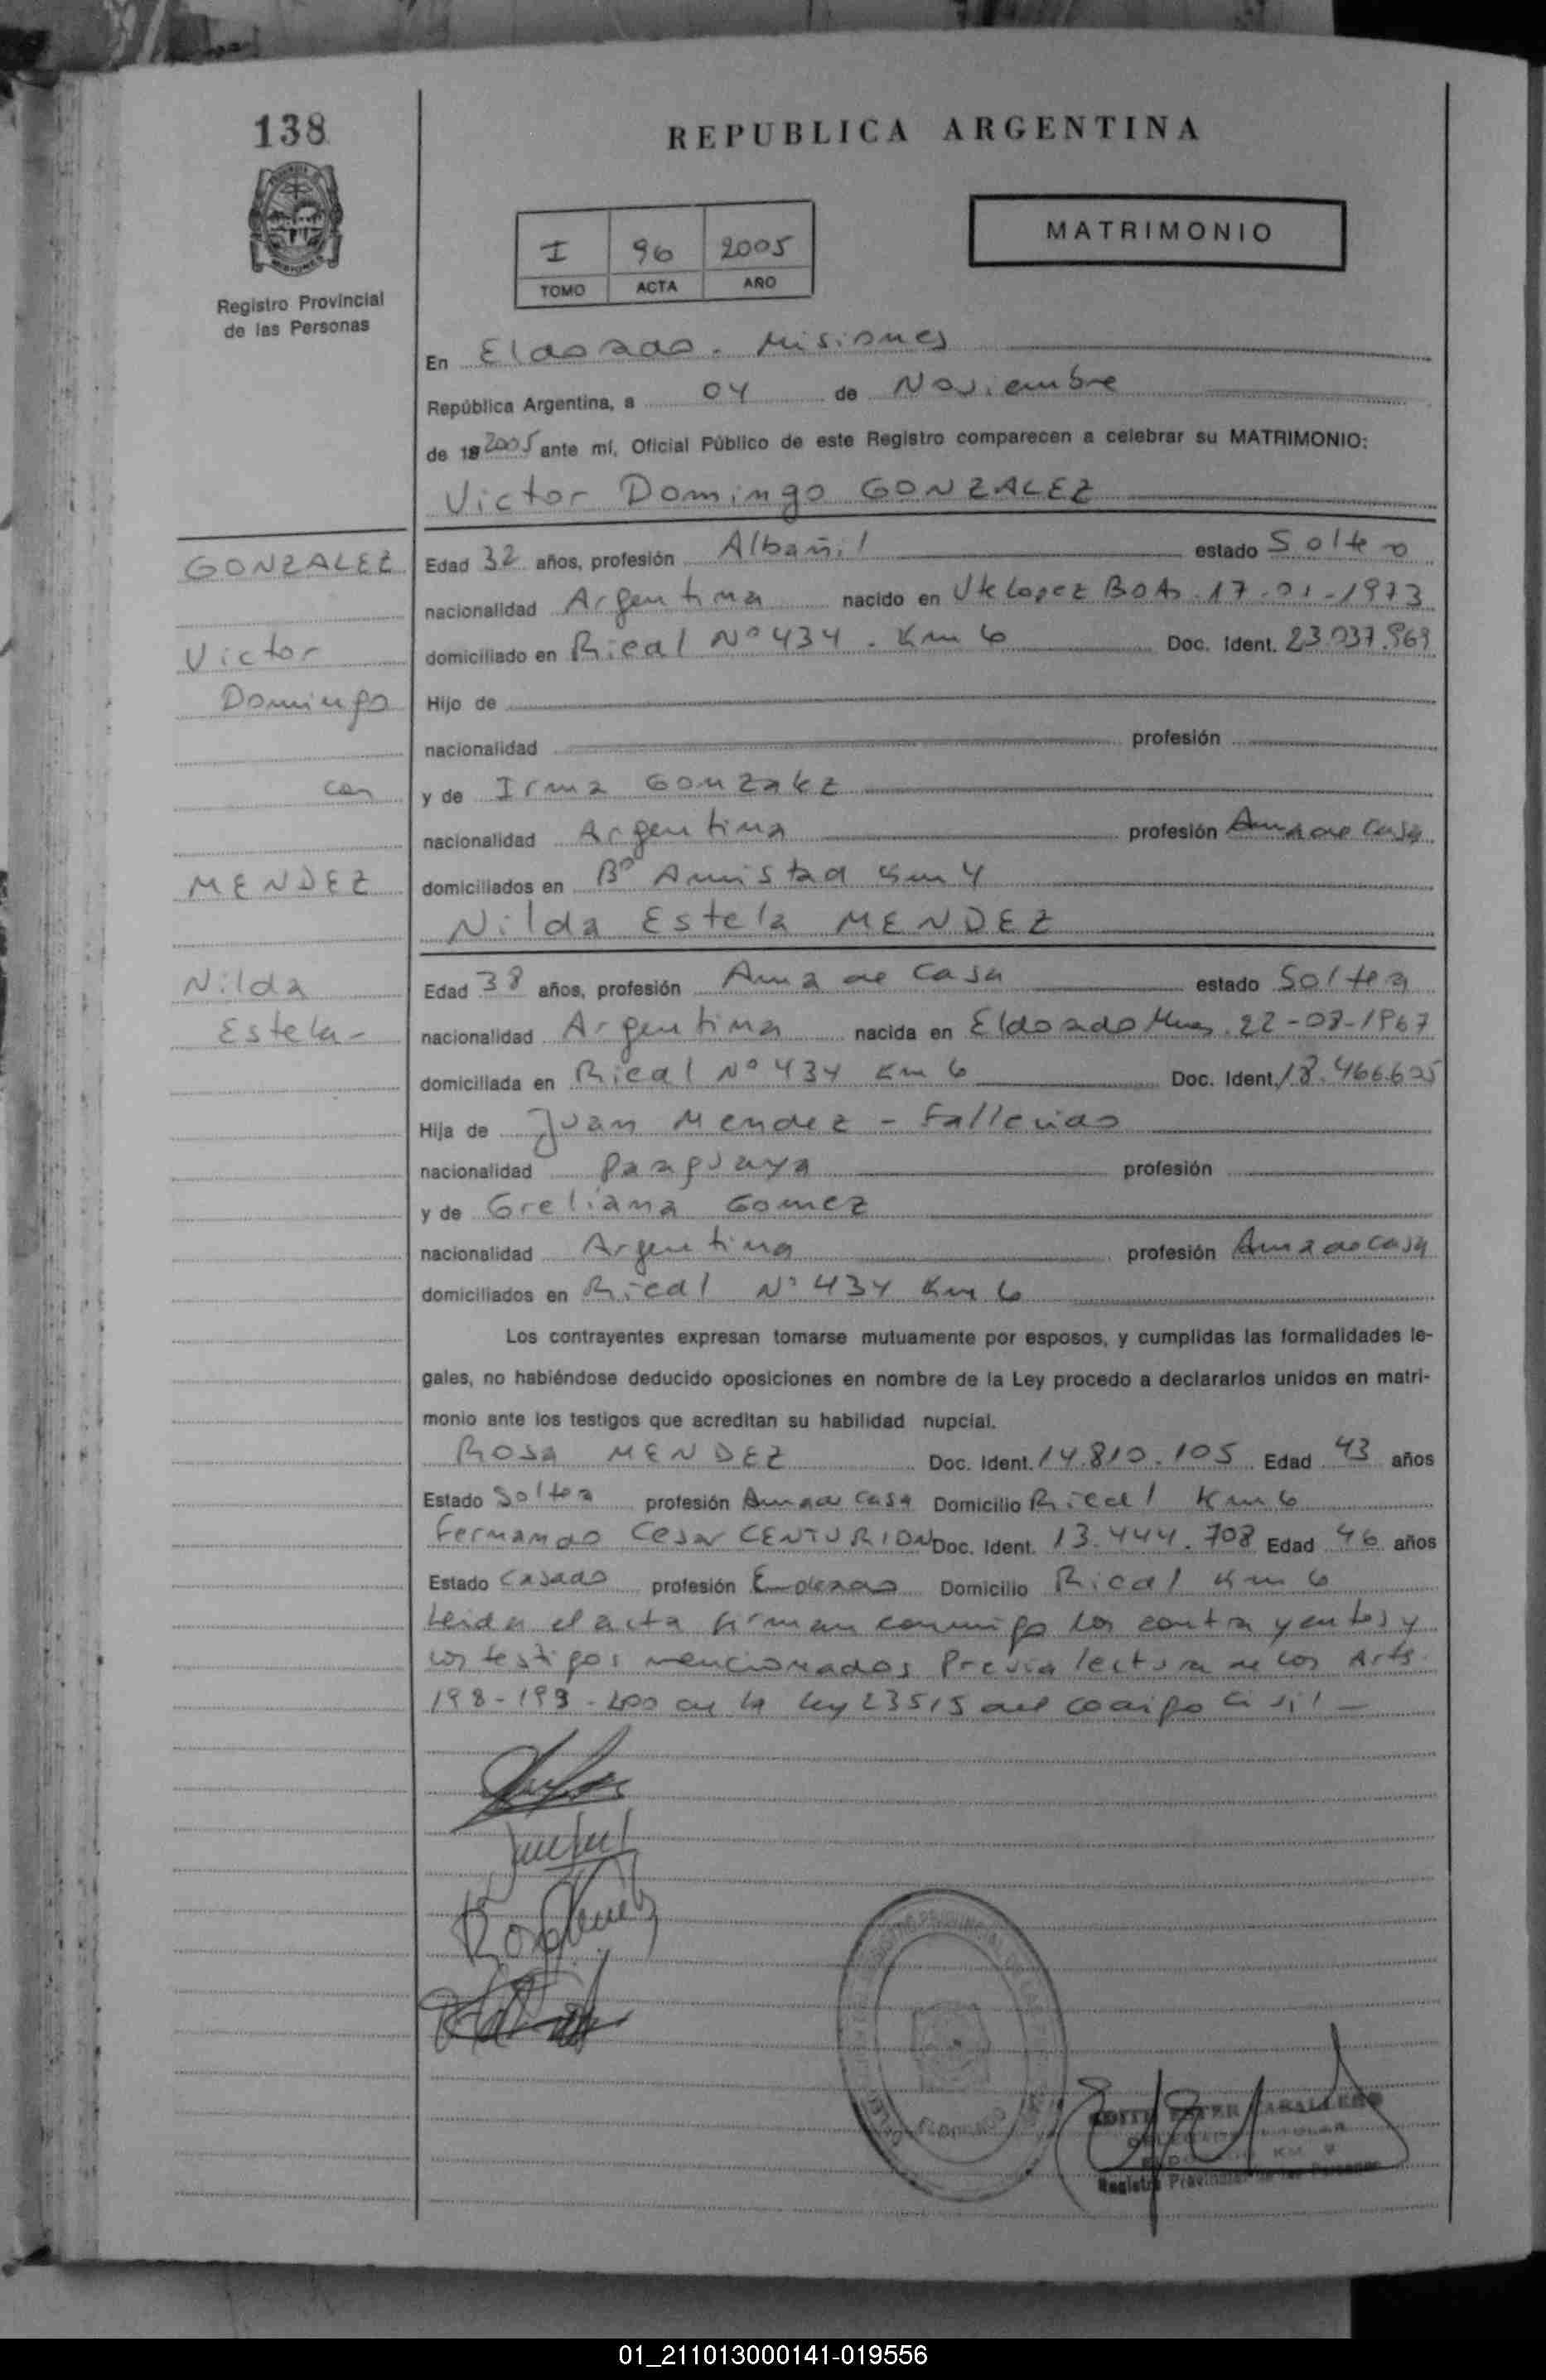 138
REPUBLICA ARGENTINA
MATRIMONIO
I 96 2005
TOMO ACTA AÑO
MISIONES
Registro Provincial
de las Personas
En Eldorado - Misiones
República Argentina, a 04 de Noviembre
de 19 2005 ante mí, Oficial Público de este Registro comparecen a celebrar su MATRIMONIO:
Victor Domingo GONZALEZ
GONZALEZ
Edad 32 años, profesión Albañil estado Soltero
nacionalidad Argentina nacido en Vte Lopez BsAs. 17-01-1973
Victor
domiciliado en Rical Nº 434 - Km 6 Doc. Ident. 23.037.969
Domingo
Hijo de
nacionalidad profesión
con
y de Irma Gonzalez
nacionalidad Argentina profesión Ama de Casa
MENDEZ
domiciliados en Bº Amistad Km 4
Nilda Estela MENDEZ
Nilda
Edad 38 años, profesión Ama de Casa estado Soltera
Estela -
nacionalidad Argentina nacida en Eldorado Mnes. 22-08-1967
domiciliada en Rical Nº 434 Km 6 Doc. Ident. 18.466.625
Hija de Juan Mendez - Fallecido
nacionalidad Paraguaya profesión
y de Greliana Gomez
nacionalidad Argentina profesión Ama de casa
domiciliados en Rical Nº 434 Km 6
Los contrayentes expresan tomarse mutuamente por esposos, y cumplidas las formalidades le-
gales, no habiéndose deducido oposiciones en nombre de la Ley procedo a declararlos unidos en matri-
monio ante los testigos que acreditan su habilidad nupcial.
Rosa MENDEZ Doc. Ident. 14.810.105 Edad 43 años
Estado Soltera profesión Ama de casa Domicilio Rical Km 6
Fernando Cesar CENTURION Doc. Ident. 13.444.708 Edad 46 años
Estado Casado profesión Empleado Domicilio Rical Km 6
Leida el acta firman conmigo los contrayentes y
los testigos mencionados Previa lectura de los Arts.
198-199-200 de la ley 23515 del codigo Civil -
EDITH ESTER CABALLERO
Registro Provincial de las Personas
01_211013000141-019556